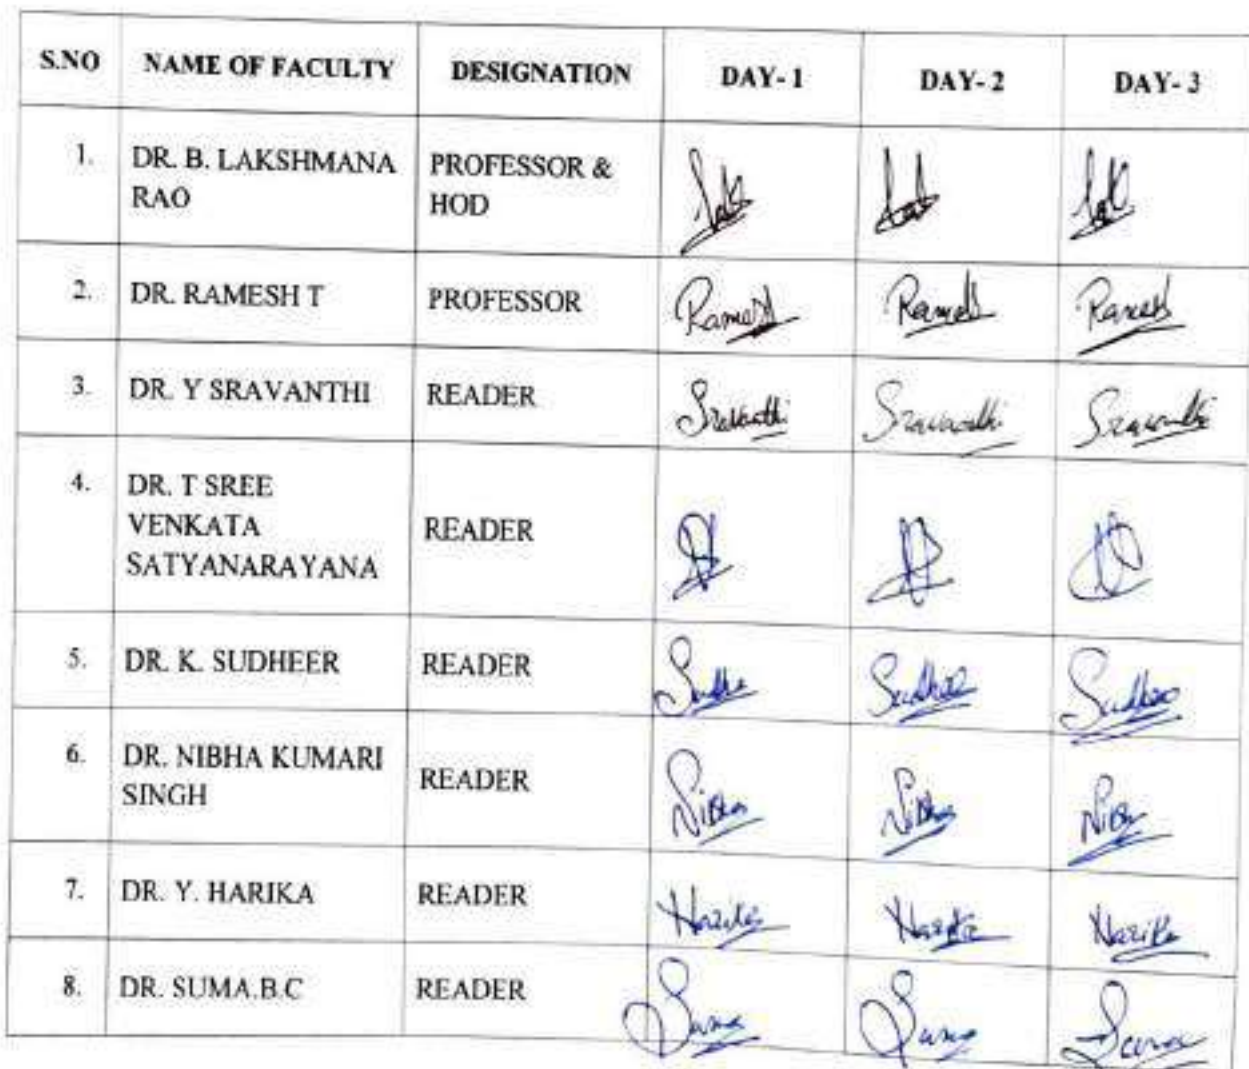 S.NO NAME OF FACULTY DESIGNATION DAY- 1 DAY- 2 DAY- 3
1. DR. B. LAKSHMANA RAO PROFESSOR & HOD
2. DR. RAMESH T PROFESSOR Ramesh Ramesh Ramesh
3. DR. Y SRAVANTHI READER Sravanthi Sravanthi Sravanthi
4. DR. T SREE VENKATA SATYANARAYANA READER
5. DR. K. SUDHEER READER Sudheer Sudheer
6. DR. NIBHA KUMARI SINGH READER Nibha Nibha Nibha
7. DR. Y. HARIKA READER Harika Harika Harika
8. DR. SUMA.B.C READER Suma Suma Suma